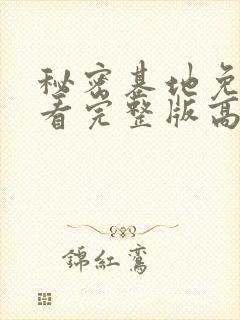 秘密基地免
看完整版高
錦紅鸞